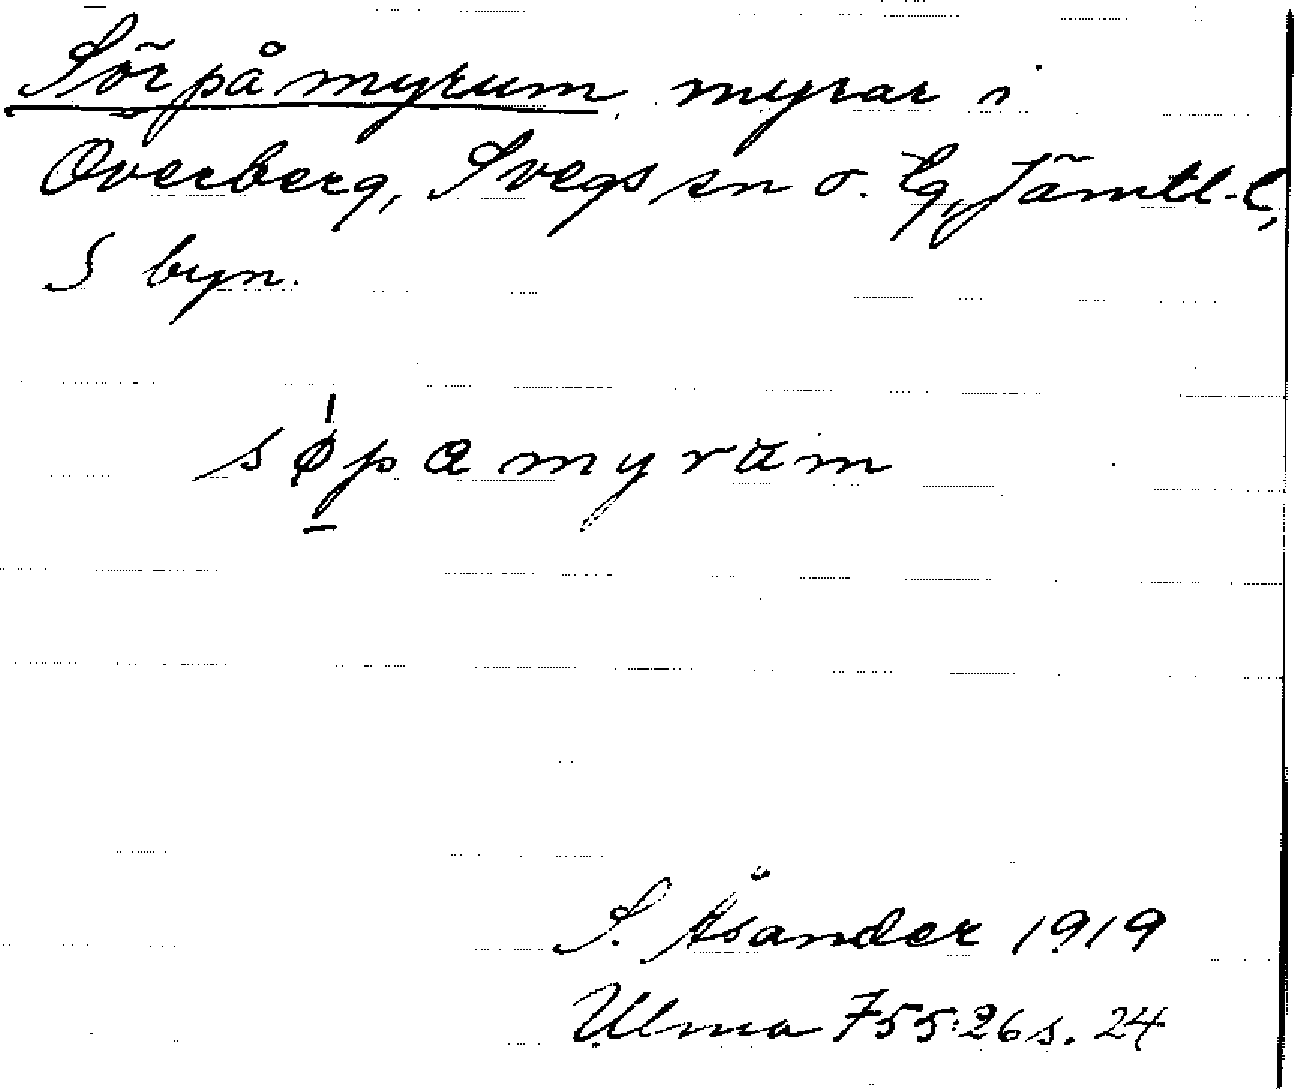 Sörpåmyrum, myrar i
Överberg, Svegs sn o. lg, Jämtl. l.,
S byn.
søpamyrum
S. Åsander 1919
Ulma 755:26 s. 24